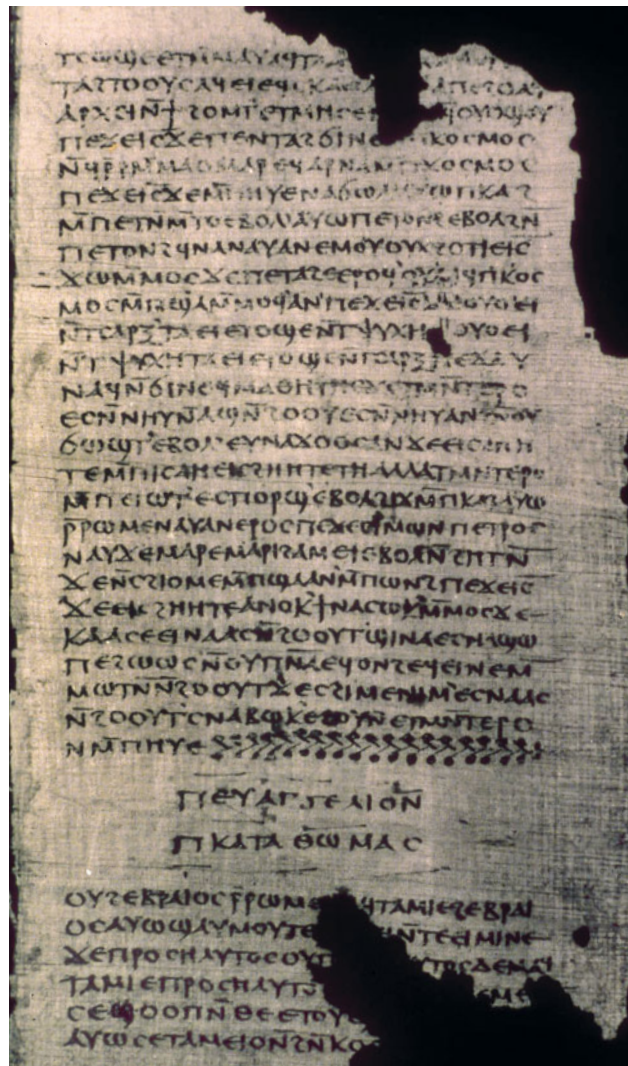 ⲧⲥⲱϣⲉ ⲉⲧⲙ̄ⲙⲁⲩ ⲁϥⲧⲁ
ⲧⲁϩⲧⲟⲟⲩⲥ ⲁϥⲉⲓ ⲉϥⲥⲕⲁⲉⲓ ⲁⲡⲉϩⲟ ⲁϥ
ⲁⲣⲭⲉⲓ ⲛ̄ϯ ϩⲟⲙⲧ ⲉⲧⲙⲏⲥⲉ ⲟⲩⲟϣⲟⲩ
ⲡⲉϫⲉ ⲓ̄ⲥ̄ ϫⲉ ⲡⲉⲛⲧⲁϩϭⲓⲛⲉ ⲡⲕⲟⲥⲙⲟⲥ
ⲛ̄ϥⲣ̄ ⲣⲙ̄ⲙⲁⲟ ⲙⲁⲣⲉϥⲁⲣⲛⲁ ⲙ̄ⲡⲕⲟⲥⲙⲟⲥ
ⲡⲉϫⲉ ⲓ̄ⲥ̄ ϫⲉ ⲙ̄ⲡⲏⲩⲉ ⲛⲁϭⲱⲗ ⲁⲩⲱ ⲡⲕⲁϩ
ⲙ̄ⲡⲉⲧⲛ̄ⲙ̄ⲧⲟ ⲉⲃⲟⲗ ⲁⲩⲱ ⲡⲉⲧⲟⲛϩ ⲉⲃⲟⲗ ϩⲛ̄
ⲡⲉⲧⲟⲛϩ ϥⲛⲁⲛⲁⲩ ⲁⲛ ⲉⲙⲟⲩ ⲟⲩⲭ ϩⲟⲧⲓ ⲉⲓ̄ⲥ̄
ϫⲱ ⲙ̄ⲙⲟⲥ ϫⲉ ⲡⲉⲧⲁϩⲉ ⲉⲣⲟϥ ⲟⲩⲁⲁϥ ⲡⲕⲟⲥ
ⲙⲟⲥ ⲙ̄ⲡϣⲁ ⲙ̄ⲙⲟϥ ⲁⲛ ⲡⲉϫⲉ ⲓ̄ⲥ̄ ϫⲉ ⲟⲩⲟⲉⲓ
ⲛ̄ⲧⲥⲁⲣⲝ̄ ⲧⲁⲉⲓ ⲉⲧⲟϣⲉ ⲛ̄ⲧⲯⲩⲭⲏ ⲟⲩⲟⲉⲓ
ⲛ̄ⲧⲯⲩⲭⲏ ⲧⲁⲉⲓ ⲉⲧⲟϣⲉ ⲛ̄ⲧⲥⲁⲣⲝ ⲡⲉϫⲁⲩ
ⲛⲁϥ ⲛ̄ϭⲓ ⲛⲉϥⲙⲁⲑⲏⲧⲏⲥ ϫⲉ ⲧⲙⲛ̄ⲧⲉⲣⲟ
ⲉⲥⲛ̄ⲛⲏⲩ ⲛ̄ⲁϣ ⲛ̄ϩⲟⲟⲩ ⲉⲥⲛ̄ⲛⲏⲩ ⲁⲛ ϩⲛ̄ ⲟⲩ
ϭⲱϣⲧ ⲉⲃⲟⲗ ⲉⲩⲛⲁϫⲟⲟⲥ ⲁⲛ ϫⲉ ⲉⲓⲥϩⲏⲏ
ⲧⲉ ⲙ̄ⲡⲓⲥⲁ ⲏ ⲉⲓⲥϩⲏⲏⲧⲉ ⲧⲏ ⲁⲗⲗⲁ ⲧⲙⲛ̄ⲧⲉⲣⲟ
ⲙ̄ⲡⲉⲓⲱⲧ ⲉⲥⲡⲟⲣϣ ⲉⲃⲟⲗ ϩⲓϫⲙ̄ ⲡⲕⲁϩ ⲁⲩⲱ
ⲣ̄ⲣⲱⲙⲉ ⲛⲁⲩ ⲁⲛ ⲉⲣⲟⲥ ⲡⲉϫⲉ ⲥⲓⲙⲱⲛ ⲡⲉⲧⲣⲟⲥ
ⲛⲁⲩ ϫⲉ ⲙⲁⲣⲉ ⲙⲁⲣⲓϩⲁⲙ ⲉⲓ ⲉⲃⲟⲗ ⲛ̄ϩⲏⲧⲛ̄
ϫⲉ ⲛ̄ⲥϩⲓⲟⲙⲉ ⲙ̄ⲡϣⲁ ⲁⲛ ⲙ̄ⲡⲱⲛϩ ⲡⲉϫⲉ ⲓ̄ⲥ̄
ϫⲉ ⲉⲓⲥϩⲏⲏⲧⲉ ⲁⲛⲟⲕ ϯⲛⲁⲥⲱⲕ ⲙ̄ⲙⲟⲥ ϫⲉ
ⲕⲁⲁⲥ ⲉⲉⲓⲛⲁⲁⲥ ⲛ̄ϩⲟⲟⲩⲧ ϣⲓⲛⲁ ⲉⲥⲛⲁϣⲱ
ⲡⲉ ϩⲱⲱⲥ ⲛ̄ⲟⲩⲡⲛ̄ⲁ̄ ⲉϥⲟⲛϩ ⲉϥⲉⲓⲛⲉ ⲙ̄
ⲙⲱⲧⲛ̄ ⲛ̄ϩⲟⲟⲩⲧ ϫⲉ ⲥϩⲓⲙⲉ ⲛⲓⲙ ⲉⲥⲛⲁⲁⲥ
ⲛ̄ϩⲟⲟⲩⲧ ⲥⲛⲁⲃⲱⲕ ⲉϩⲟⲩⲛ ⲉⲧⲙⲛ̄ⲧⲉⲣⲟ
ⲛⲙ̄ⲡⲏⲩⲉ
ⲡⲉⲩⲁⲅⲅⲉⲗⲓⲟⲛ
ⲡⲕⲁⲧⲁ ⲑⲱⲙⲁⲥ
ⲟⲩϩⲉⲃⲣⲁⲓⲟⲥ ⲣ̄ⲣⲱⲙⲉ ϥⲧⲁⲙⲓⲉ ϩⲉⲃⲣⲁⲓ
ⲟⲥ ⲁⲩⲱ ϣⲁⲩⲙⲟⲩⲧⲉ ⲛ̄ⲧⲉⲉⲓⲙⲓⲛⲉ
ϫⲉ ⲡⲣⲟⲥⲏⲗⲩⲧⲟⲥ ⲟⲩⲡ ⲗⲩⲧⲟⲥ ⲇⲉ ⲙⲁϥ
ⲧⲁⲙⲓⲉ ⲡⲣⲟⲥⲏⲗⲩⲧⲟⲥ ⲙⲉ
ⲥⲉϣⲟⲟⲡ ⲛ̄ⲑⲉ ⲉⲧⲟⲩ
ⲁⲩⲱ ⲥⲉⲧⲁⲙⲉⲓⲟ ⲛ̄ϩⲛ̄ⲕⲟ